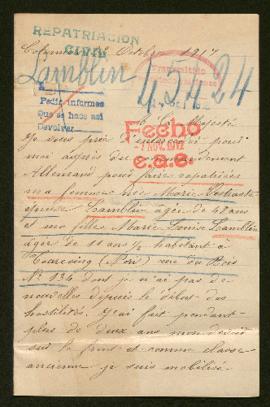 REPATRIACION
CIVIL
Octobre 1917
Lamblin
45424
Pedir informes
Que se hace así
Devolver
Fecho
NOV. 1917
A Sa Majesté
Je vous prie d'intercéder pour
moi auprès du
Allemand pour faire rapatrier
ma femme née Marie
épouse Lamblin âgée de ans
et ma fille Marie Louise Lamblin
âgée de 11 ans ½ habitant à
Tourcoing (Nord) rue du Bois
No 136 dont je n'ai pas de
nouvelles depuis le début des
hostilités. J'ai fait pendant
plus de deux ans mon devoir
sur le front et comme classe
ancienne je suis mobilisé